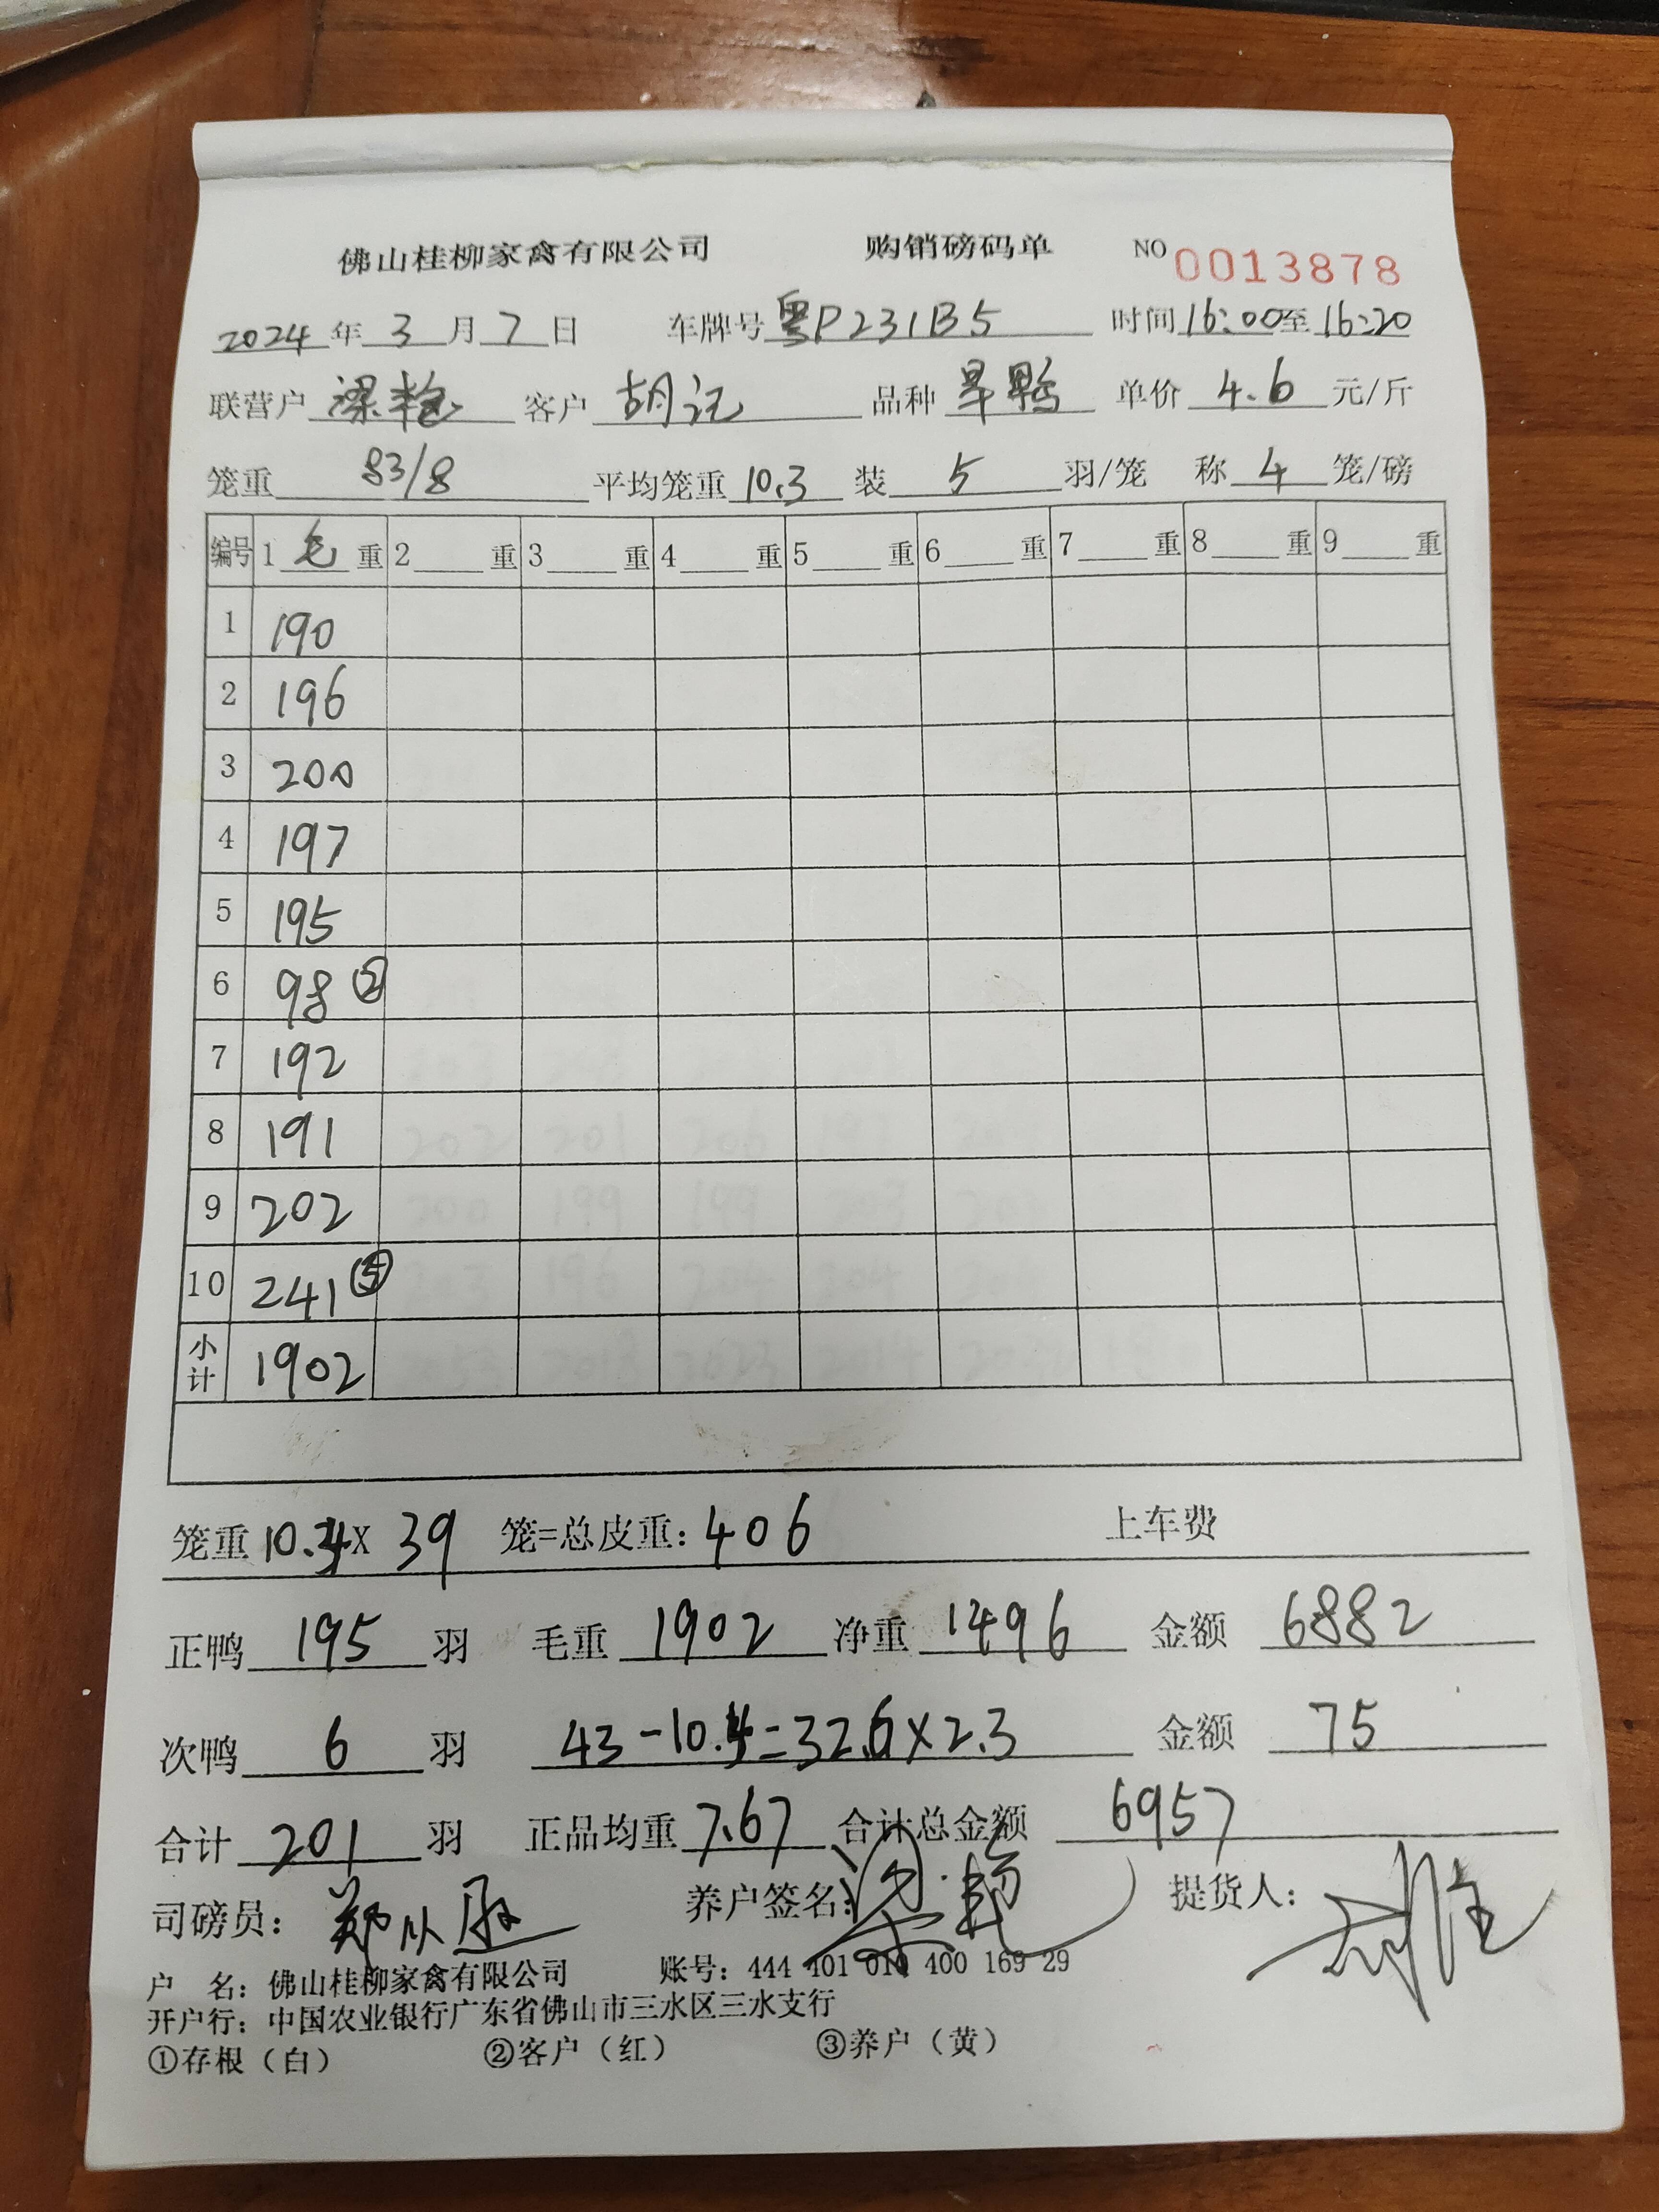 佛山桂柳家禽有限公司 购销磅码单 NO 0013878
2024 年 3 月 7 日 车牌号 粤P231B5 时间 16:00 至 16:20
联营户 梁艳 客户 胡记 品种 旱鸭 单价 4.6 元/斤
笼重 83/8 平均笼重 10.3 装 5 羽/笼 称 4 笼/磅
编号 1 毛 重 2 重 3 重 4 重 5 重 6 重 7 重 8 重 9 重
1 190
2 196
3 200
4 197
5 195
6 98 ②
7 192
8 191
9 202
10 241 ⑤
小计 1902
笼重 10.4 X 39 笼=总皮重: 406 上车费
正鸭 195 羽 毛重 1902 净重 1496 金额 6882
次鸭 6 羽 43-10.4=32.6×2.3 金额 75
合计 201 羽 正品均重 7.67 合计总金额 6957
司磅员: 郑从 养户签名: 梁艳 提货人:
户 名: 佛山桂柳家禽有限公司 账号: 444 401 010 400 169 29
开户行: 中国农业银行广东省佛山市三水区三水支行
①存根（白） ②客户（红） ③养户（黄）